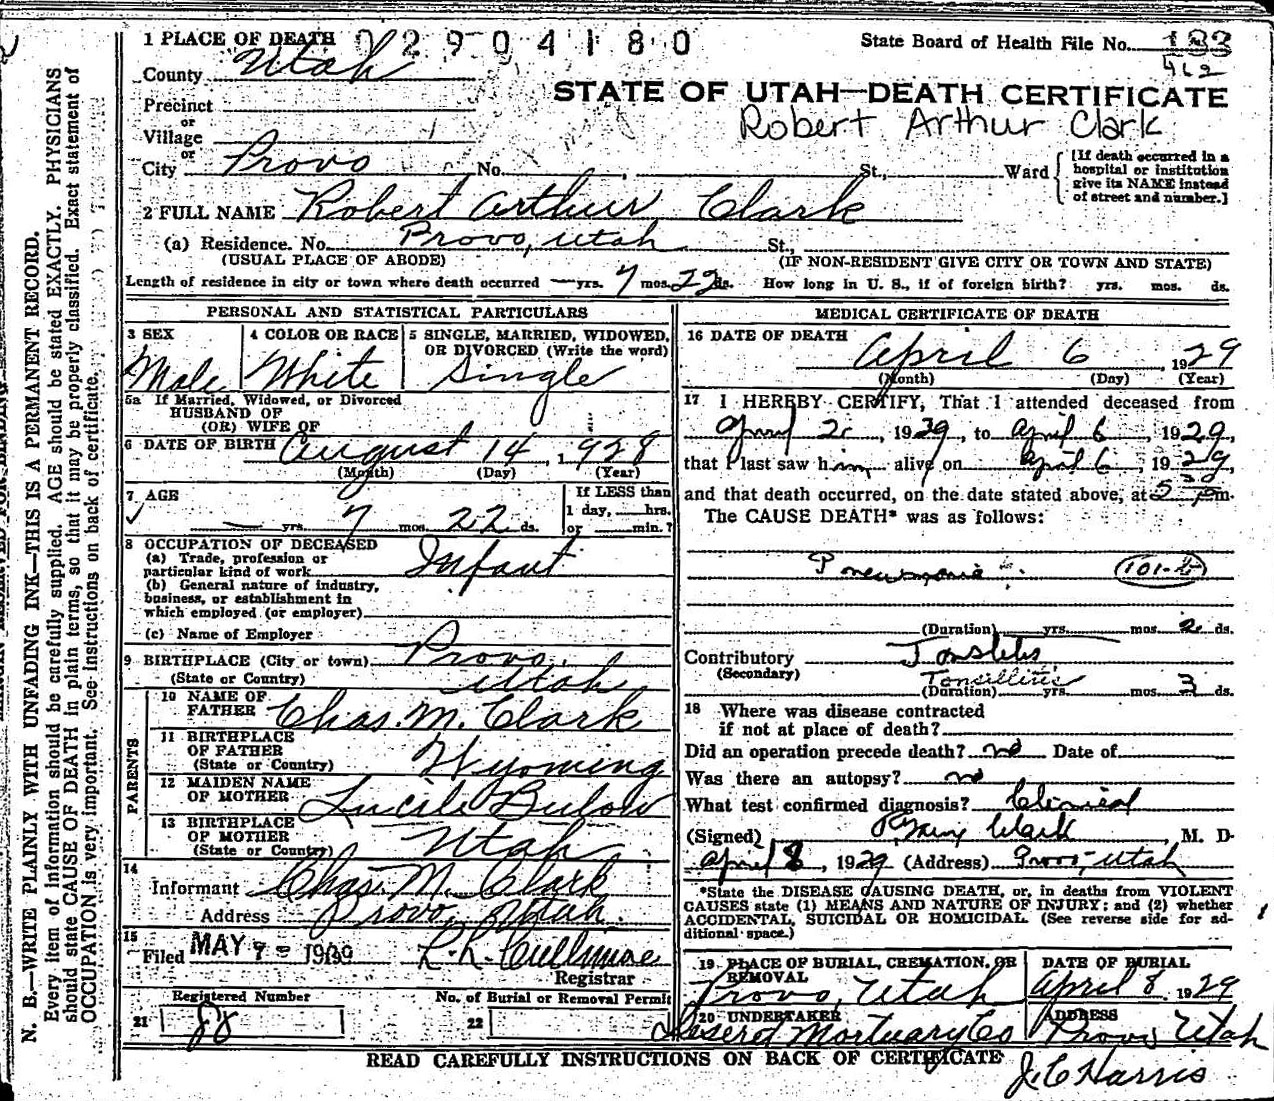 1 PLACE OF DEATH 02904180 State Board of Health File No. 183
462
County Utah
STATE OF UTAH—DEATH CERTIFICATE
Precinct
or
Robert Arthur Clark
Village
or
City Provo No. St., Ward [If death occurred in a hospital or institution give its NAME instead of street and number.]
2 FULL NAME Robert Arthur Clark
(a) Residence. No. Provo, Utah St.,
(USUAL PLACE OF ABODE) (IF NON-RESIDENT GIVE CITY OR TOWN AND STATE)
Length of residence in city or town where death occurred — yrs. 7 mos. 22 ds. How long in U. S., if of foreign birth? yrs. mos. ds.
PERSONAL AND STATISTICAL PARTICULARS
3 SEX
Male
4 COLOR OR RACE
White
5 SINGLE, MARRIED, WIDOWED,
OR DIVORCED (Write the word)
Single
5a If Married, Widowed, or Divorced
HUSBAND OF
(OR) WIFE OF
6 DATE OF BIRTH August 14, 1928
(Month) (Day) (Year)
7 AGE
— yrs. 7 mos. 22 ds.
If LESS than
1 day, hrs.
or min.?
8 OCCUPATION OF DECEASED
(a) Trade, profession or
particular kind of work Infant
(b) General nature of industry,
business, or establishment in
which employed (or employer)
(c) Name of Employer
9 BIRTHPLACE (City or town) Provo,
(State or Country) Utah
PARENTS
10 NAME OF
FATHER Chas. M. Clark
11 BIRTHPLACE
OF FATHER
(State or Country) Wyoming
12 MAIDEN NAME
OF MOTHER Lucile Bulow
13 BIRTHPLACE
OF MOTHER
(State or Country) Utah
14
Informant Chas. M. Clark
Address Provo, Utah.
15
Filed MAY 1929
Registrar
Registered Number
21 88
No. of Burial or Removal Permit
22
MEDICAL CERTIFICATE OF DEATH
16 DATE OF DEATH
April 6, 1929
(Month) (Day) (Year)
17 I HEREBY CERTIFY, That I attended deceased from
April 2, 1929, to April 6, 1929,
that I last saw him alive on April 6, 1929,
and that death occurred, on the date stated above, at 5 30 pm.
The CAUSE DEATH* was as follows:
Pneumonia
(Duration) yrs. mos. 2 ds.
Contributory
(Secondary) Tonsillitis
(Duration) yrs. mos. 3 ds.
18 Where was disease contracted
if not at place of death?
Did an operation precede death? no Date of
Was there an autopsy? no
What test confirmed diagnosis? Clinical
(Signed) Clark M. D.
April 8, 1929 (Address) Provo, Utah
*State the DISEASE CAUSING DEATH, or, in deaths from VIOLENT
CAUSES state (1) MEANS AND NATURE OF INJURY; and (2) whether
ACCIDENTAL, SUICIDAL OR HOMICIDAL. (See reverse side for ad-
ditional space.)
19 PLACE OF BURIAL, CREMATION, OR
REMOVAL
Provo, Utah
DATE OF BURIAL
April 8 1929
20 UNDERTAKER
Deseret Mortuary Co
ADDRESS
Provo Utah
READ CAREFULLY INSTRUCTIONS ON BACK OF CERTIFICATE
J. C. Harris
N. B.—WRITE PLAINLY WITH UNFADING INK—THIS IS A PERMANENT RECORD.
Every item of information should be carefully supplied. AGE should be stated EXACTLY. PHYSICIANS
should state CAUSE OF DEATH in plain terms, so that it may be properly classified. Exact statement of
OCCUPATION is very important. See instructions on back of certificate.